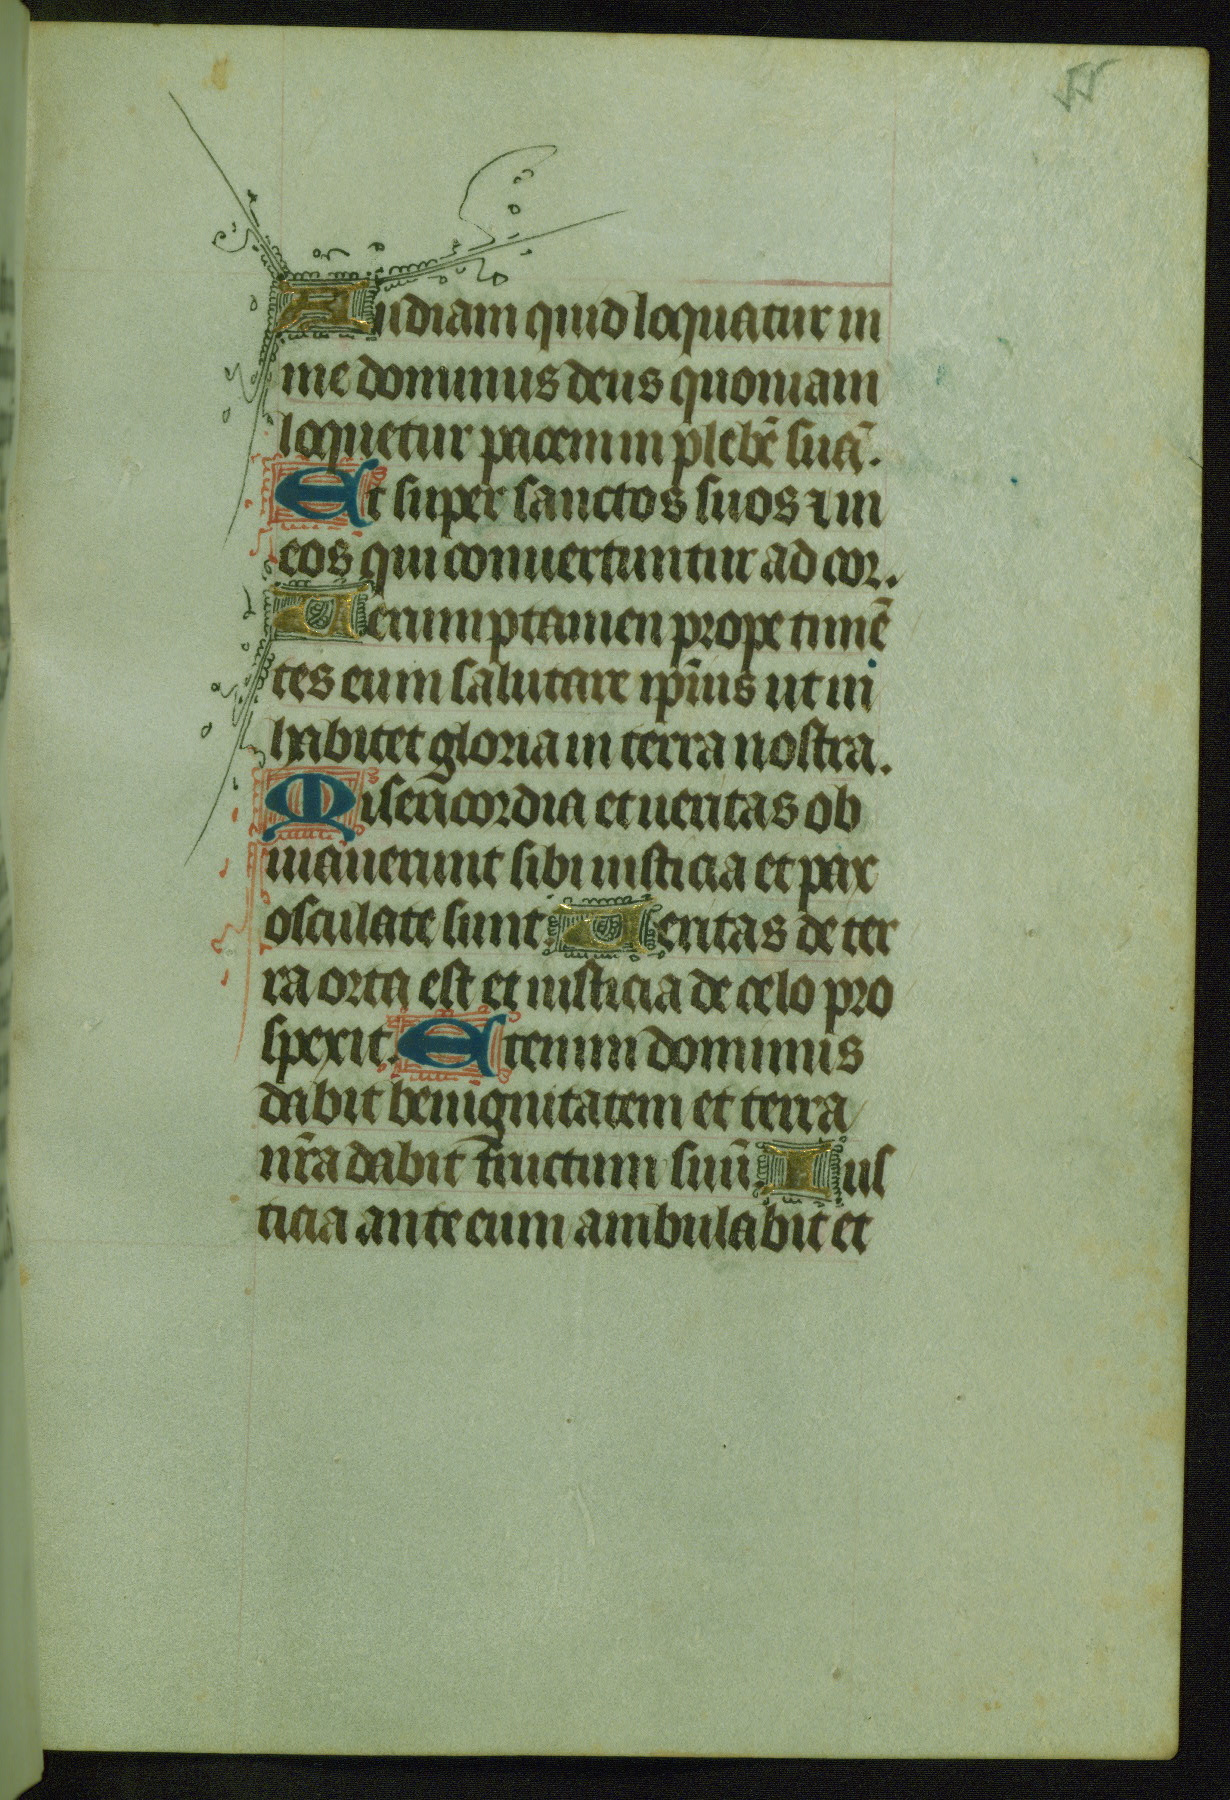 Audiam quid loquatur in
me dominus deus quoniam
loquetur pacem in plebē suā.
Et super sanctos suos ⁊ in
eos qui conuertuntur ad cor.
Uerumptamen prope timē
tes eum salutare ip̄ius ut in
habitet gloria in terra nostra.
Misericordia et ueritas ob
uiauerunt sibi iusticia et pax
osculate sunt. Ueritas de ter
ra orta est et iusticia de celo pro
spexit. Etenim dominus
dabit benignitatem et terra
nr̄a dabit fructum suū. Ius
ticia ante eum ambulabit et